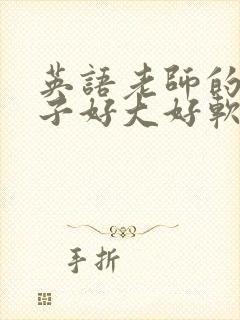 英語老師的
子好大好軟
手折